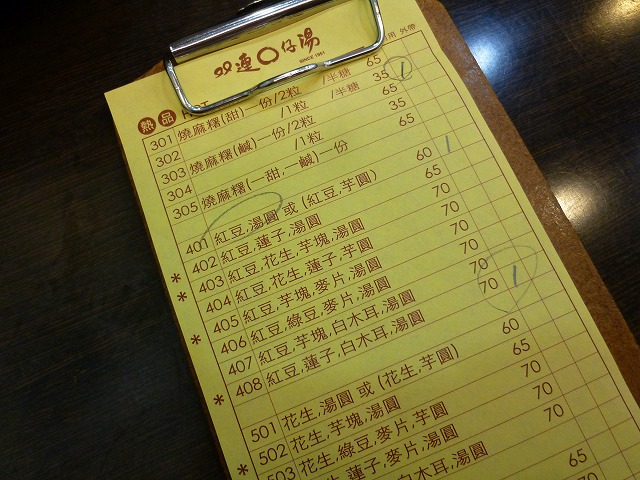 双連〇仔湯
SINCE 1951
熱品 HOT 用 外帶
301 燒麻糬(甜)一份/2粒 /半糖 65 1
302 /1粒 /半糖 35
303 燒麻糬(鹹)一份/2粒 65
304 /1粒 35
305 燒麻糬(一甜,一鹹)一份 65
401 紅豆,湯圓 或 (紅豆,芋圓) 60 1
402 紅豆,蓮子,湯圓 65
* 403 紅豆,花生,芋塊,湯圓 70
* 404 紅豆,花生,蓮子,芋圓 70
405 紅豆,芋塊,麥片,湯圓 70
* 406 紅豆,綠豆,麥片,湯圓 70
407 紅豆,芋塊,白木耳,湯圓 70
* 408 紅豆,蓮子,白木耳,湯圓 70 1
501 花生,湯圓 或 (花生,芋圓) 60
502 花生,芋塊,湯圓 65
* 503 花生,綠豆,麥片,芋圓 70
蓮子,麥片,湯圓 70
白木耳,湯圓 70
65